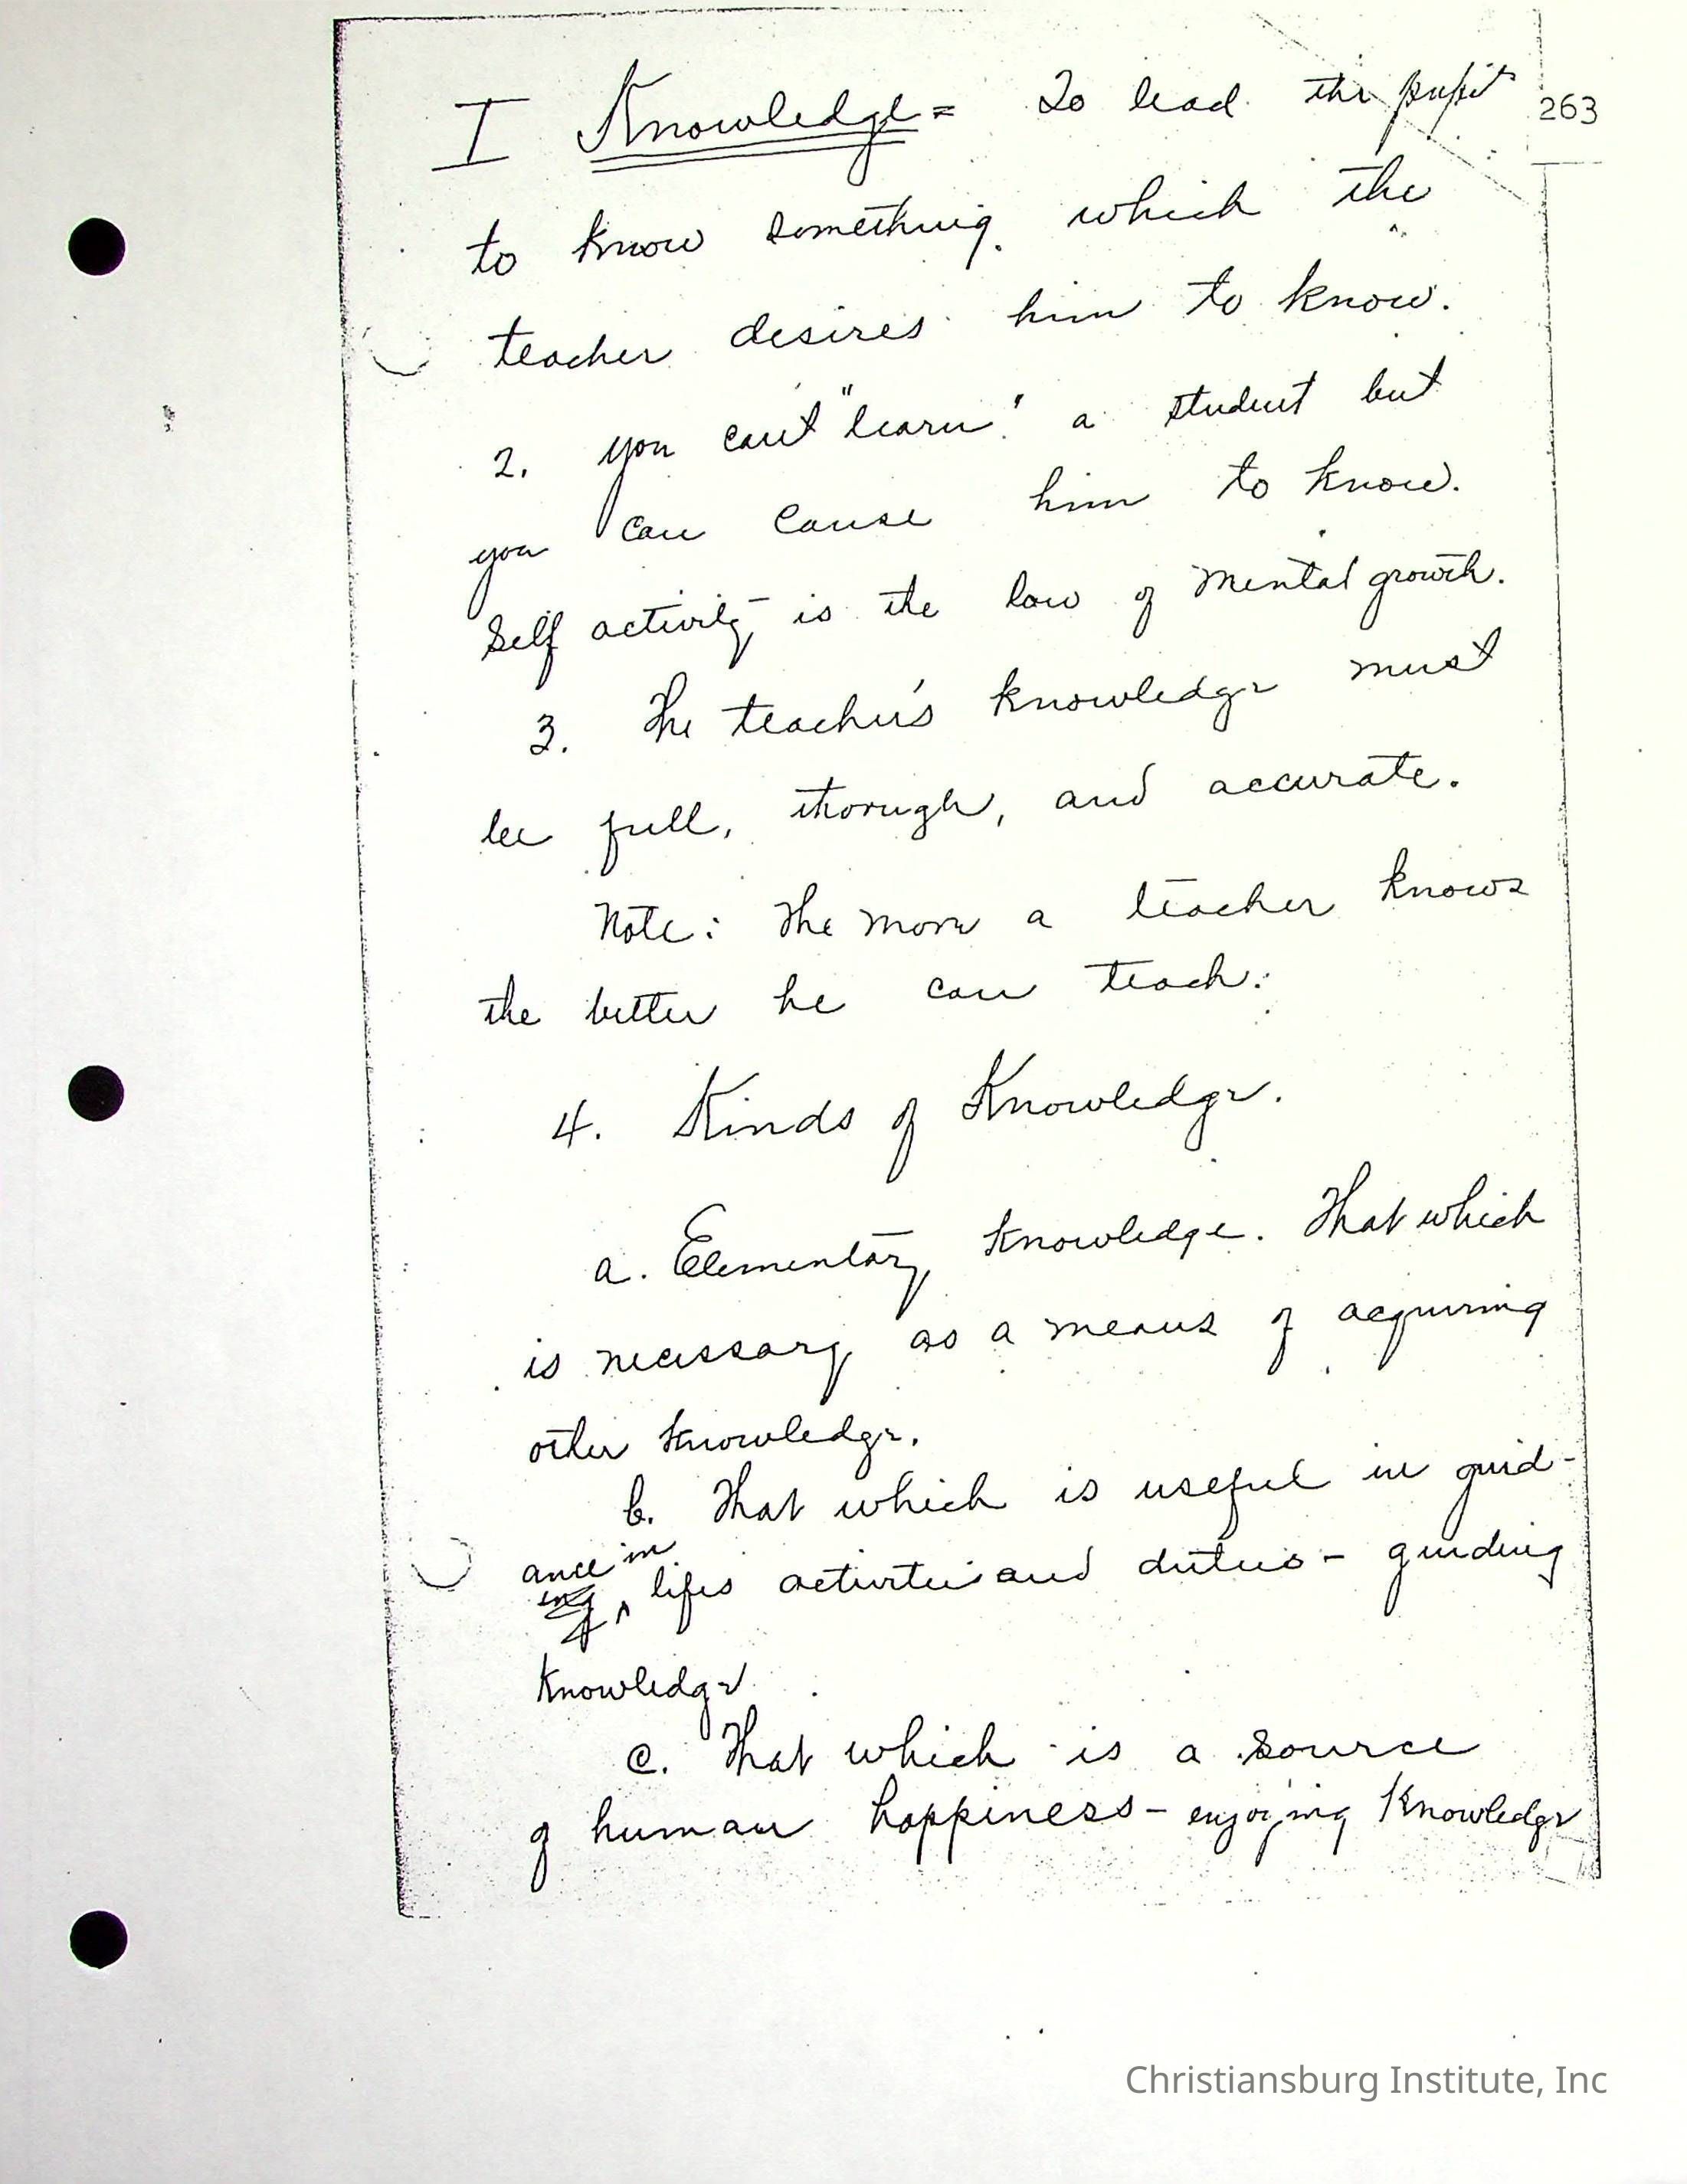 I Knowledge = To lead the pupil
263
to know something which the
teacher desires him to know.
2. you can't "learn" a student but
you can cause him to know.
Self activity is the law of mental growth.
3. The teacher's knowledge must
be full, thorough, and accurate.
Note: The more a teacher knows
the better he can teach.
4. Kinds of Knowledge.
a. Elementary knowledge. That which
is necessary as a means of acquiring
other knowledge.
b. That which is useful in guid-
ance in lifes activities and duties - guiding
Knowledge
c. That which is a source
of human happiness - enjoying Knowledge
Christiansburg Institute, Inc